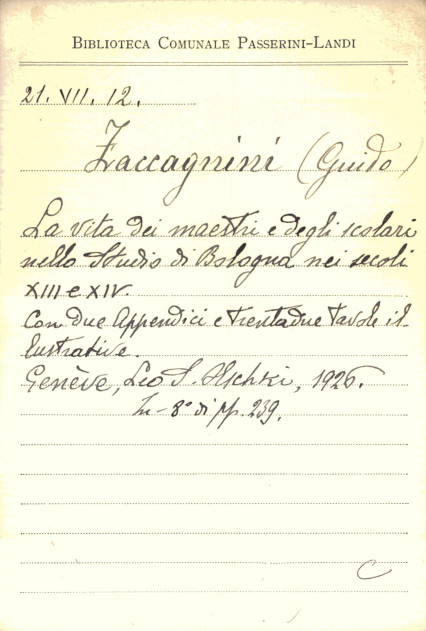 BIBLIOTECA COMUNALE PASSERINI-LANDI
21. VII. 12.
Zaccagnini (Guido)
La vita dei maestri e degli scolari
nello Studio di Bologna nei secoli
XIII e XIV.
Con due Appendici e trentadue tavole il-
lustrative.
Genève, Leo S. Olschki, 1926.
In-8° di pp. 239.
C